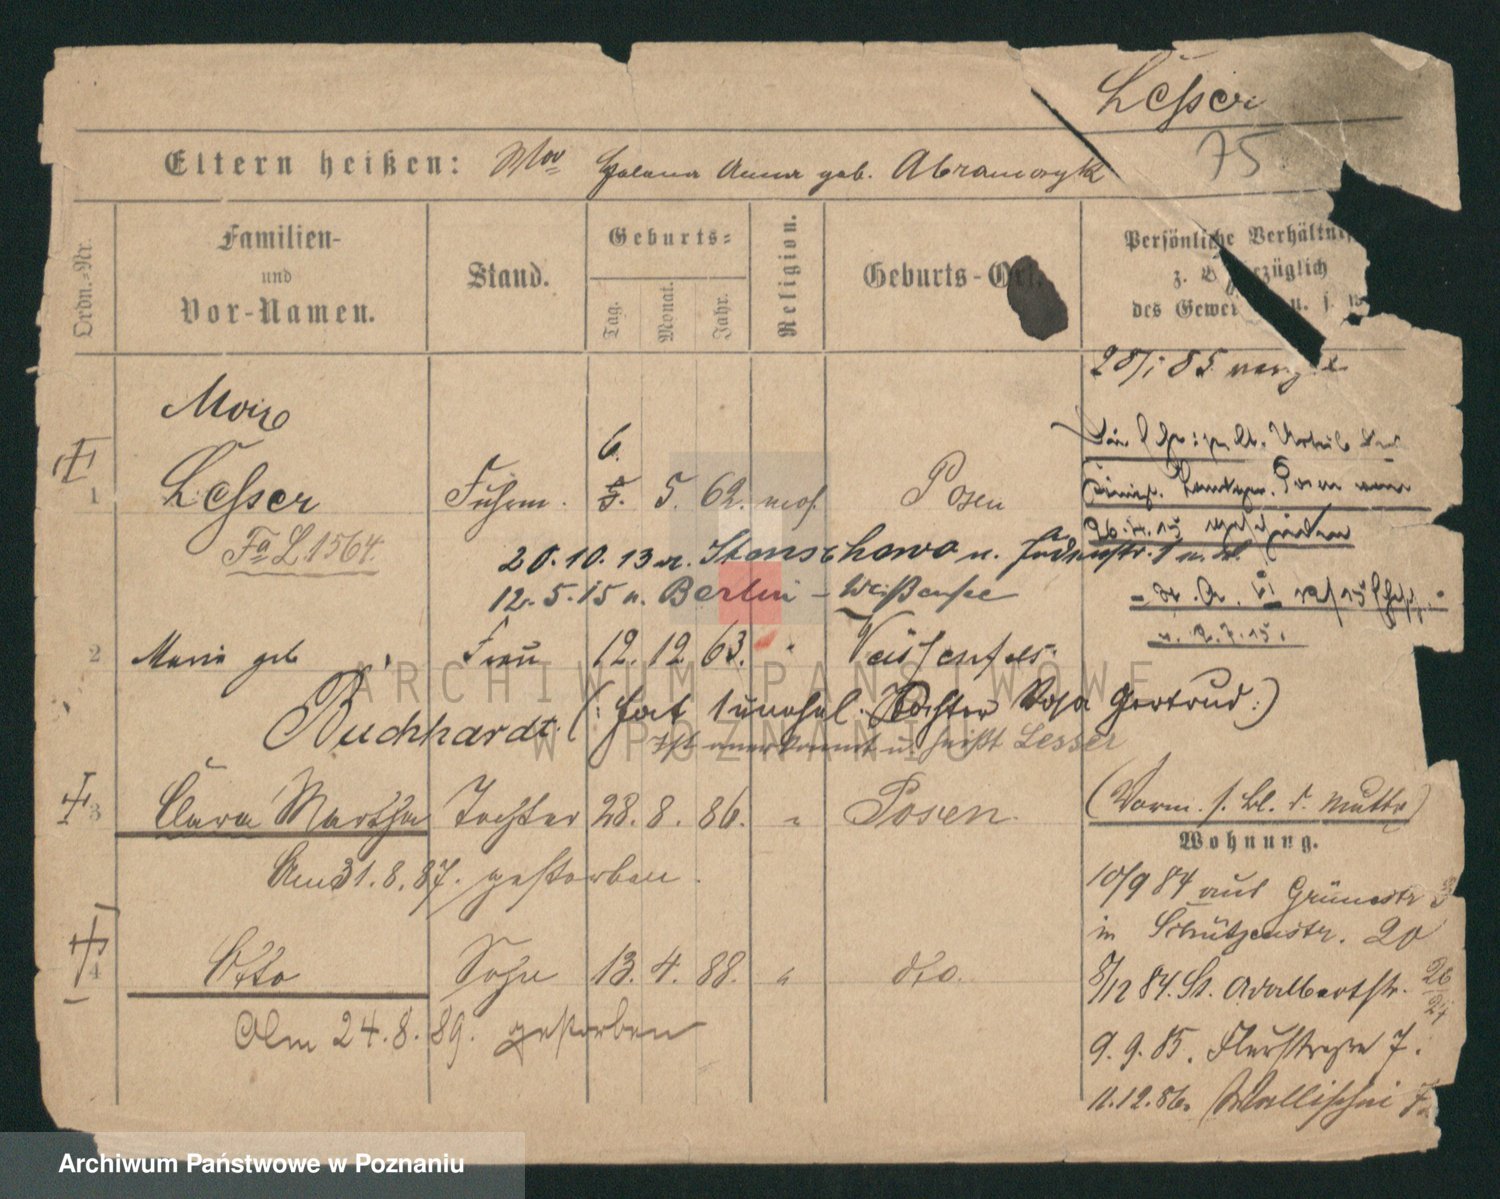 Lesser
75
Eltern heißen: Helena Anna geb. Abramczyk
Ordn.-Nr.
Familien-
und
Vor-Namen.
Stand.
Geburts-
Tag.
Monat.
Jahr.
Religion.
Geburts-Ort.
Persönliche Verhältnis
z. B. bezüglich
des Gewer u. s. w
28/1 85
6.
1 Lesser Fuhrm. 5. 5. 62. mos. Posen
Fa L. 1564.
20.10.13 n.
12.5.15 n. Berlin-Weißensee
u. 2.7.15.
2 Marie geb. Frau 12. 12 63. " Weissenfels.
Buchhardt. (: hat 1 unehel. Tochter Rosa Gertrud :)
Ist anerkannt u. heißt Lesser
3 Clara Martha Tochter 28. 8. 86. " Posen.
(Vorm. s. Bl. d. Mutter)
Wohnung.
Am 31.8.87. gestorben.
10/9 84 aus Grünestr 3
in Schützenstr. 20
4 Otto Sohn 13. 4. 88. " dto.
8/12 84. St. Adalbertstr. 26
24
Am 24.8.89. gestorben
9. 9. 85. 7.
11.12.86. Wallischei
ARCHIWUM PAŃSTWOWE
W POZNANIU
Archiwum Państwowe w Poznaniu